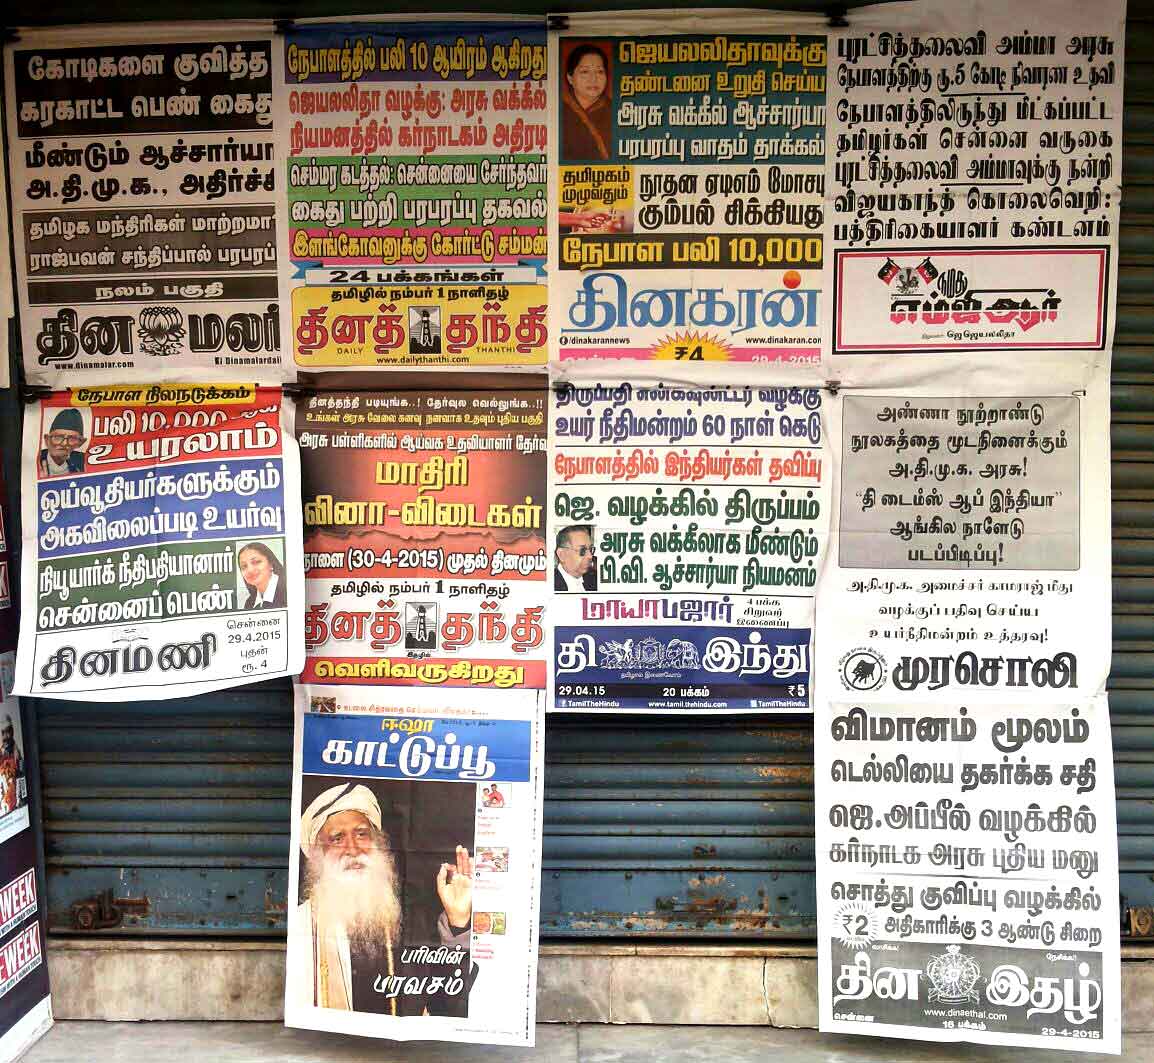 கோடிகளை குவித்த
கரகாட்ட பெண் கைது
மீண்டும் ஆச்சார்யா
அ.தி.மு.க., அதிர்ச்சி
தமிழக மந்திரிகள் மாற்றமா
ராஜ்பவன் சந்திப்பால் பரபரப்
நலம் பகுதி
தின மலர்
www.dinamalar.com
Dinamalardai
நேபாளத்தில் பலி 10 ஆயிரம் ஆகிறது
ஜெயலலிதா வழக்கு: அரசு வக்கீல்
நியமனத்தில் கர்நாடகம் அதிரடி
செம்மர கடத்தல்: சென்னையை சேர்ந்தவர்
கைது பற்றி பரபரப்பு தகவல்
இளங்கோவனுக்கு கோர்ட்டு சம்மன்
24 பக்கங்கள்
தமிழில் நம்பர் 1 நாளிதழ்
தினத் தந்தி
DAILY THANTHI
www.dailythanthi.com
ஜெயலலிதாவுக்கு
தண்டனை உறுதி செய்ய
அரசு வக்கீல் ஆச்சார்யா
பரபரப்பு வாதம் தாக்கல்
தமிழகம்
முழுவதும்
நூதன ஏடிஎம் மோசடி
கும்பல் சிக்கியது
நேபாள பலி 10,000
தினகரன்
/dinakarannews
www.dinakaran.com
சென்னை
₹4
29-4-2015
புரட்சித்தலைவி அம்மா அரசு
நேபாளத்திற்கு ரூ.5 கோடி நிவாரண உதவி
நேபாளத்திலிருந்து மீட்கப்பட்ட
தமிழர்கள் சென்னை வருகை
புரட்சித்தலைவி அம்மாவுக்கு நன்றி
விஜயகாந்த் கொலைவெறி:
பத்திரிகையாளர் கண்டனம்
நமது
எம்ஜிஆர்
நிறுவனர் ஜெ ஜெயலலிதா
நேபாள நிலநடுக்கம்
பலி 10,000
உயரலாம்
ஓய்வூதியர்களுக்கும்
அகவிலைப்படி உயர்வு
நியூயார்க் நீதிபதியானார்
சென்னைப் பெண்
தினமணி
சென்னை
29.4.2015
புதன்
ரூ. 4
தினத்தந்தி படியுங்க..! தேர்வுல வெல்லுங்க..!!
உங்கள் அரசு வேலை கனவு நனவாக உதவும் புதிய பகுதி
அரசு பள்ளிகளில் ஆய்வக உதவியாளர் தேர்வு
மாதிரி
வினா-விடைகள்
நாளை (30-4-2015) முதல் தினமும்
தமிழில் நம்பர் 1 நாளிதழ்
தினத் தந்தி
இதழில்
வெளிவருகிறது
திருப்பதி என்கவுன்ட்டர் வழக்கு
உயர் நீதிமன்றம் 60 நாள் கெடு
நேபாளத்தில் இந்தியர்கள் தவிப்பு
ஜெ. வழக்கில் திருப்பம்
அரசு வக்கீலாக மீண்டும்
பி.வி. ஆச்சார்யா நியமனம்
மாயாபஜார்
4 பக்க
சிறுவர்
இணைப்பு
தி இந்து
29.04.15
20 பக்கம்
₹5
TamilTheHindu
www.tamil.thehindu.com
TamilTheHindu
அண்ணா நூற்றாண்டு
நூலகத்தை மூடநினைக்கும்
அ.தி.மு.க. அரசு!
“தி டைம்ஸ் ஆப் இந்தியா”
ஆங்கில நாளேடு
படப்பிடிப்பு!
அ.தி.மு.க. அமைச்சர் காமராஜ் மீது
வழக்குப் பதிவு செய்ய
உயர்நீதிமன்றம் உத்தரவு!
முரசொலி
ஈஷா
காட்டுப்பூ
பரிவின்
பரவசம்
விமானம் மூலம்
டெல்லியை தகர்க்க சதி
ஜெ.அப்பீல் வழக்கில்
கர்நாடக அரசு புதிய மனு
சொத்து குவிப்பு வழக்கில்
அதிகாரிக்கு 3 ஆண்டு சிறை
₹2
வாசிக்க!
நேசிக்க!
தின இதழ்
www.dinaethal.com
சென்னை
16 பக்கம்
29-4-2015
WEEK
WEEK